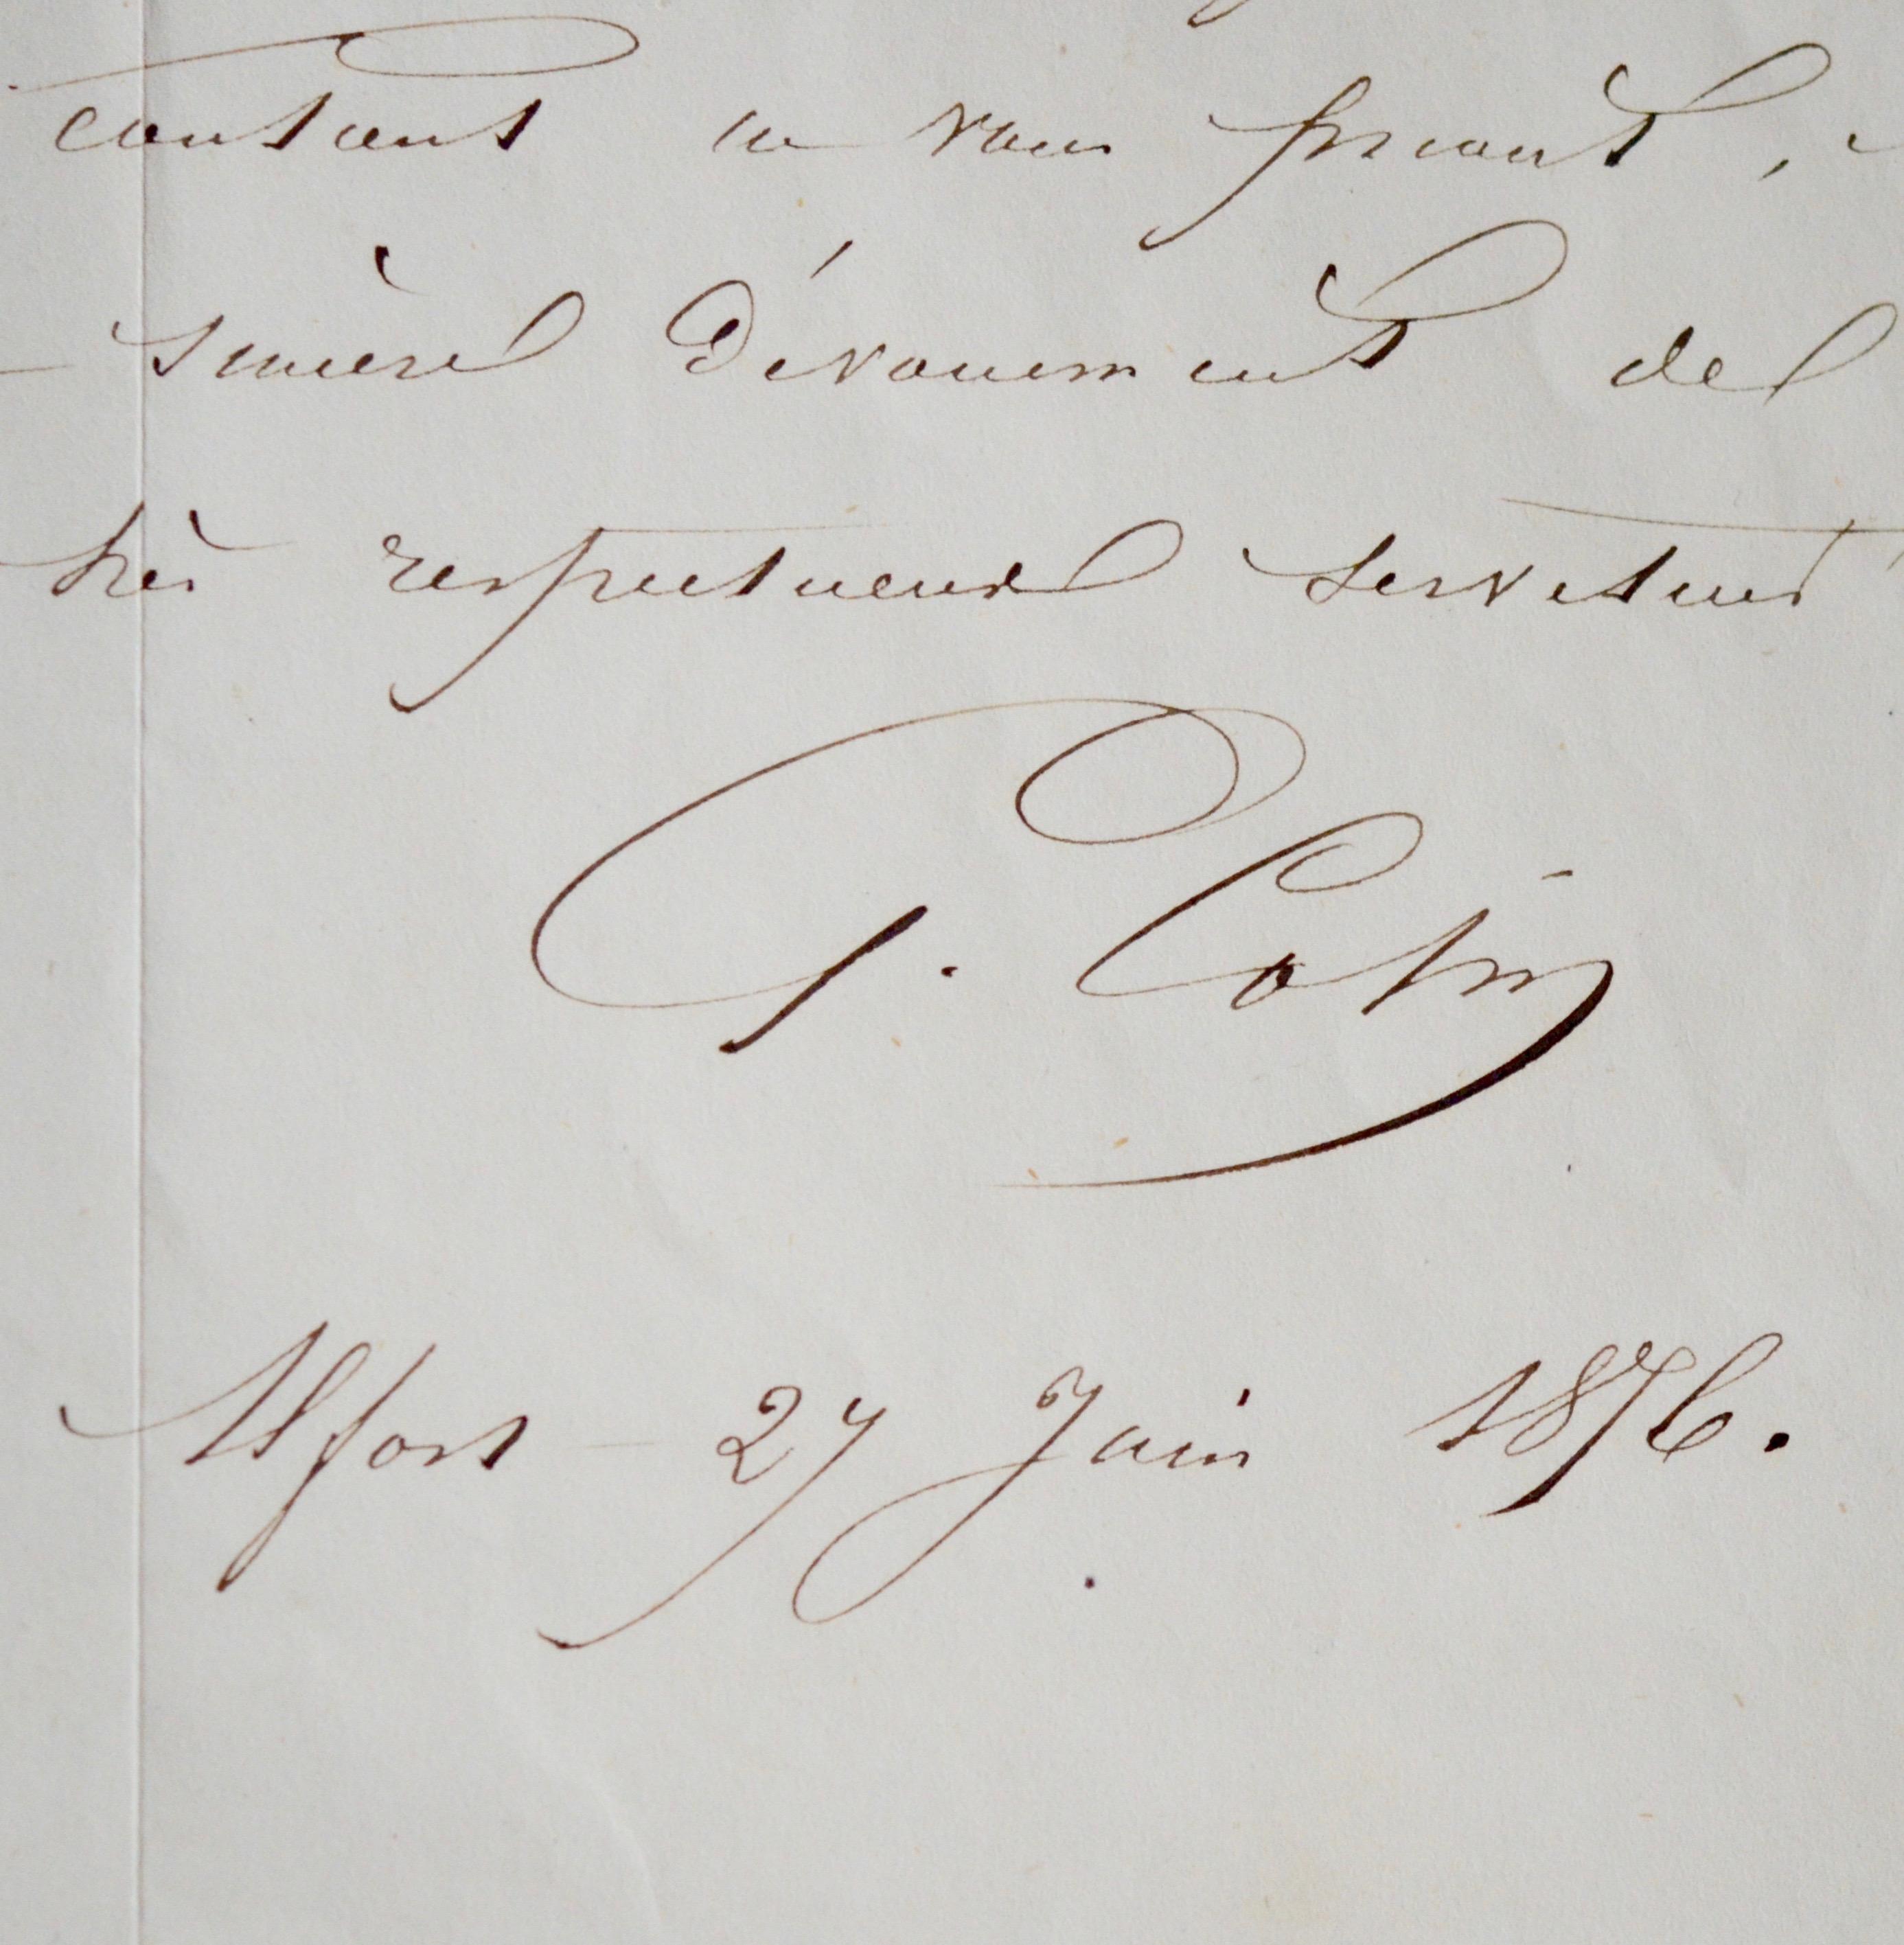 constant en vous priant,
sincère dévouement de
très respectueux serviteur
G. Colin
Alfort 27 Juin 1876.